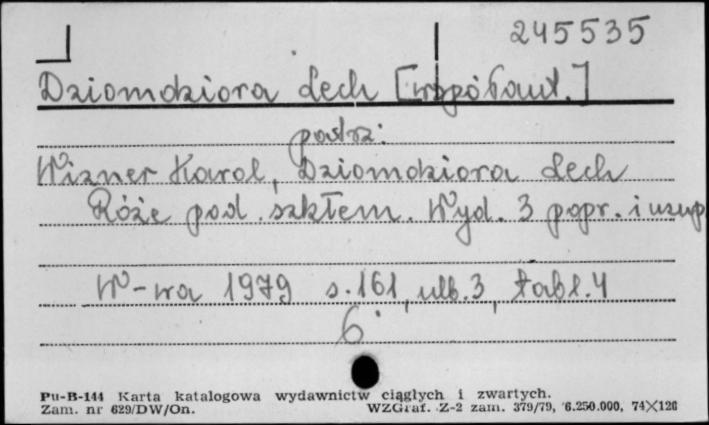 245535
Dziomdziora Lech [współaut.]
patrz:
Wizner Karol, Dziomdziora Lech
Róże pod szkłem. Wyd. 3 popr. i uzup
W-wa 1979 s. 161, ulb. 3, tabl. 4
6
Pu-B-144 Karta katalogowa wydawnictw ciągłych i zwartych.
Zam. nr 629/DW/On. WZGraf. Z-2 zam. 379/79, 6.250.000, 74×126